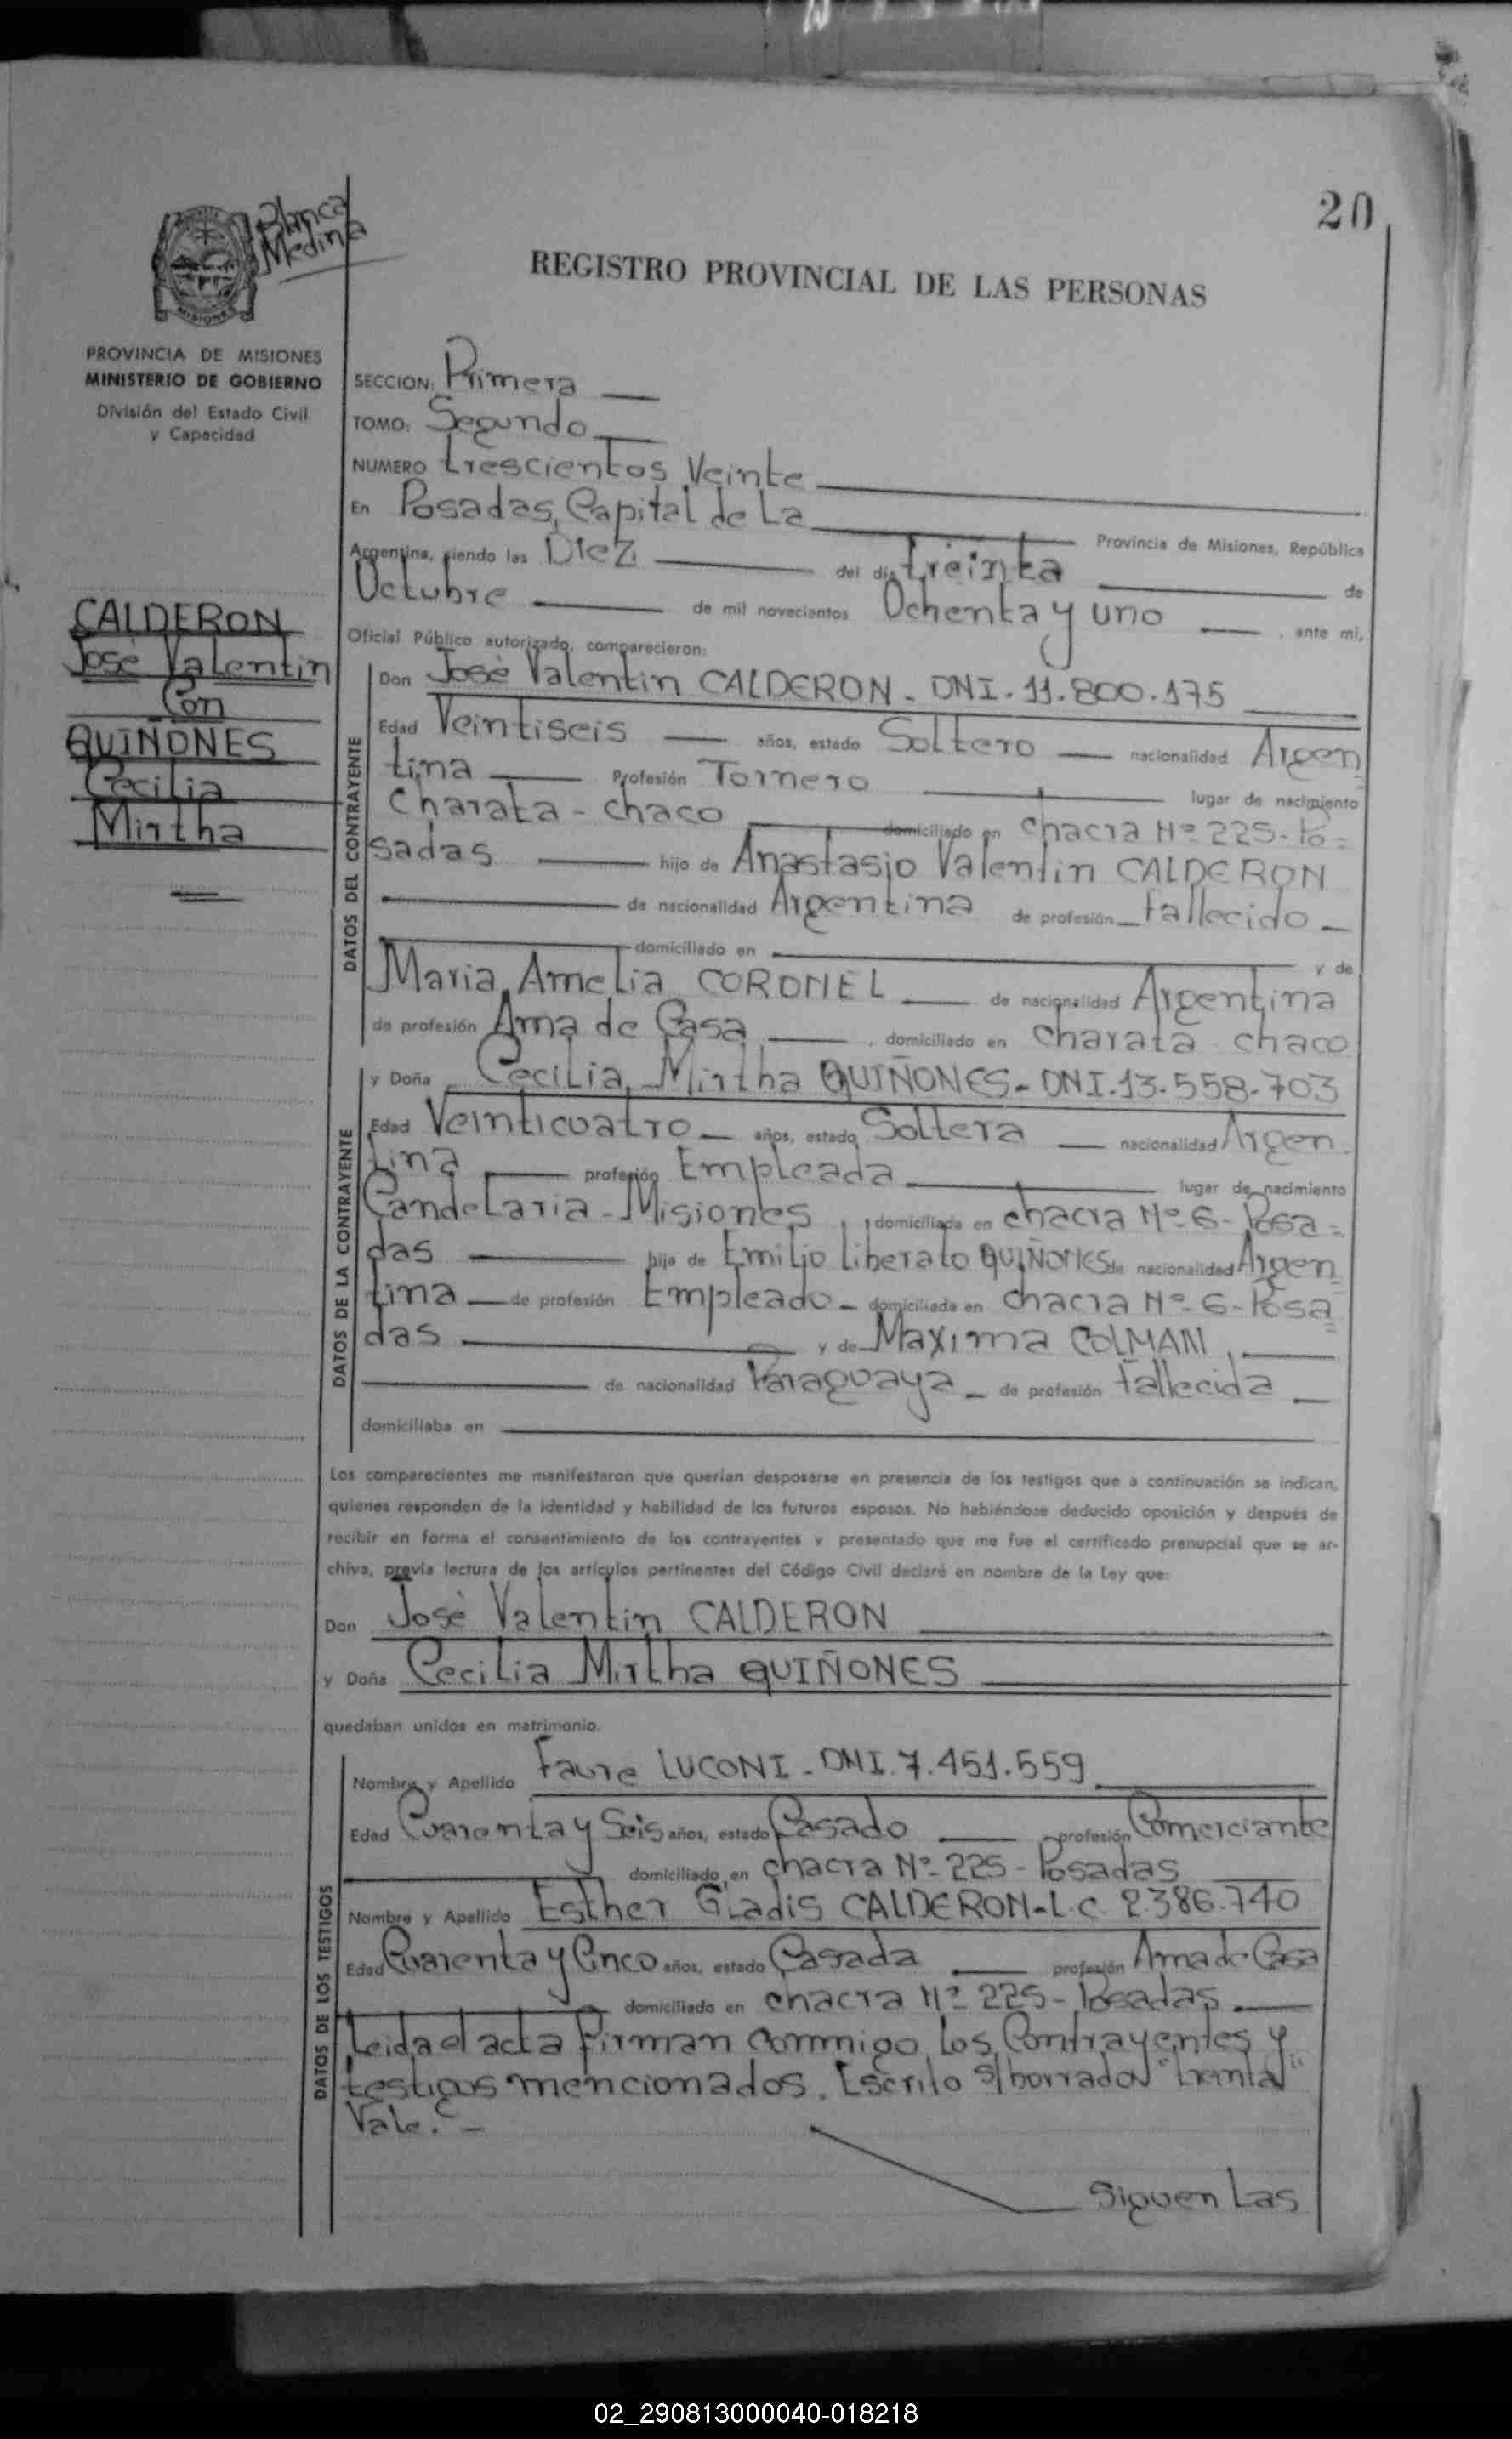 20
Blanca
Medina
REGISTRO PROVINCIAL DE LAS PERSONAS
MISIONES
PROVINCIA DE MISIONES
MINISTERIO DE GOBIERNO
División del Estado Civil
y Capacidad
CALDERON
José Valentin
Con
QUIÑONES
Cecilia
Mirtha
SECCION: Primera
TOMO: Segundo
NUMERO trescientos Veinte
En Posadas, Capital de La Provincia de Misiones, República
Argentina, siendo las Diez del día treinta de
Octubre de mil novecientos Ochenta y uno, ante mi,
Oficial Público autorizado, comparecieron:
DATOS DEL CONTRAYENTE
Don Josè Valentin CALDERON - DNI. 11.800.175
Edad Veintiseis años, estado Soltero nacionalidad Argen
tina Profesión Tornero lugar de nacimiento
Charata - Chaco domiciliado en Chacra Nº 225 - Po=
sadas hijo de Anastasio Valentin CALDERON
de nacionalidad Argentina de profesión Fallecido
domiciliado en y de
Maria Amelia CORONEL de nacionalidad Argentina
de profesión Ama de Casa, domiciliado en Charata Chaco
DATOS DE LA CONTRAYENTE
y Doña Cecilia Mirtha QUIÑONES - DNI. 13.558.703
Edad Veinticuatro años, estado Soltera nacionalidad Argen
tina profesión Empleada lugar de nacimiento
Candelaria - Misiones, domiciliada en Chacra Nº 6 - Posa=
das hija de Emilio Liberato QUIÑONES de nacionalidad Argen
tina de profesión Empleado - domiciliada en Chacra Nº 6 - Posa=
das y de Maxima COLMAN,
de nacionalidad Paraguaya de profesión Fallecida
domiciliaba en
Los comparecientes me manifestaron que querían desposarse en presencia de los testigos que a continuación se indican,
quienes responden de la identidad y habilidad de los futuros esposos. No habiéndose deducido oposición y después de
recibir en forma el consentimiento de los contrayentes y presentado que me fue el certificado prenupcial que se ar-
chiva, previa lectura de los artículos pertinentes del Código Civil declaré en nombre de la Ley que:
Don Josè Valentin CALDERON
y Doña Cecilia Mirtha QUIÑONES
quedaban unidos en matrimonio.
DATOS DE LOS TESTIGOS
Nombre y Apellido Faure LUCONI - DNI. 7.451.559
Edad Cuarenta y Seis años, estado Casado profesión Comerciante
domiciliado en Chacra Nº 225 - Posadas
Nombre y Apellido Esther Gladis CALDERON - L.C. 2386.740
Edad Cuarenta y Cinco años, estado Casada profesión Ama de Casa
domiciliado en Chacra Nº 225 - Posadas
Leida el acta firman conmigo los Contrayentes y
testigos mencionados. Escrito s/borrado "treinta"
Vale. -
Siguen Las
02_290813000040-018218